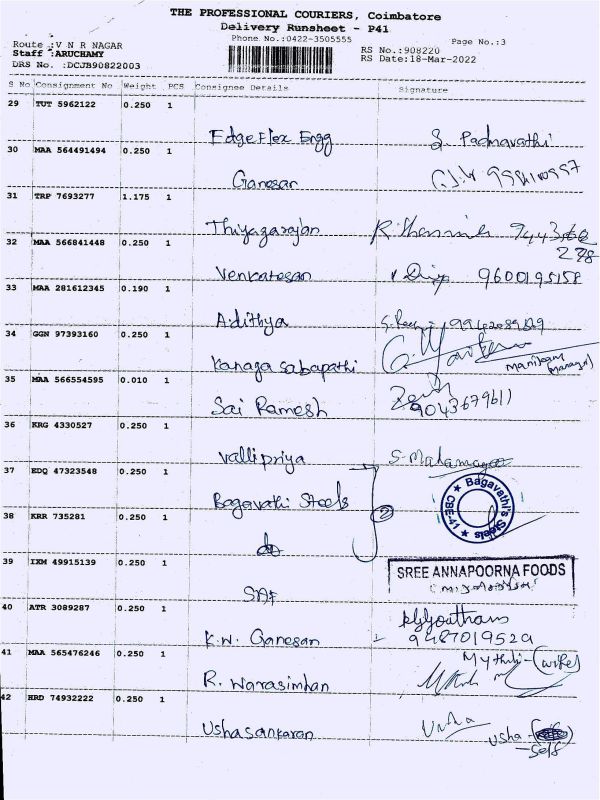 THE PROFESSIONAL COURIERS, Coimbatore
Delivery Runsheet - P41
Phone No.:0422-3505555
Page No.:3
Route :V N R NAGAR
Staff :ARUCHAMY
DRS No. :DCJB90822003
RS No.:908220
RS Date:18-Mar-2022
S No Consignment No Weight PCS Consignee Details Signature
29 TUT 5962122 0.250 1
Edgeflex Engg S. Padmavathi
30 MAA 564491494 0.250 1
Ganesan
31 TRP 7693277 1.175 1
Thiyagarajan 9443
278
32 MAA 566841448 0.250 1
Venkatesan 9600195158
33 MAA 281612345 0.190 1
Adithya
34 GGN 97393160 0.250 1
Kanaga sabapathi Manikam
(Manager)
35 MAA 566554595 0.010 1
Sai Ramesh 9043679611
36 KRG 4330527 0.250 1
Vallipriya
37 EDQ 47323548 0.250 1
Bagavathi Steels 2 Bagavathi's Steels CBE-41
38 KRR 735281 0.250 1
do
39 IXM 49915139 0.250 1
SREE ANNAPOORNA FOODS
SAF
40 ATR 3089287 0.250 1
K.N. Ganesan 9487019529
41 MAA 565476246 0.250 1
Mythili-(wife)
R. Narasimhan
42 HRD 74932222 0.250 1
Ushasankaran Usha Usha-
Self